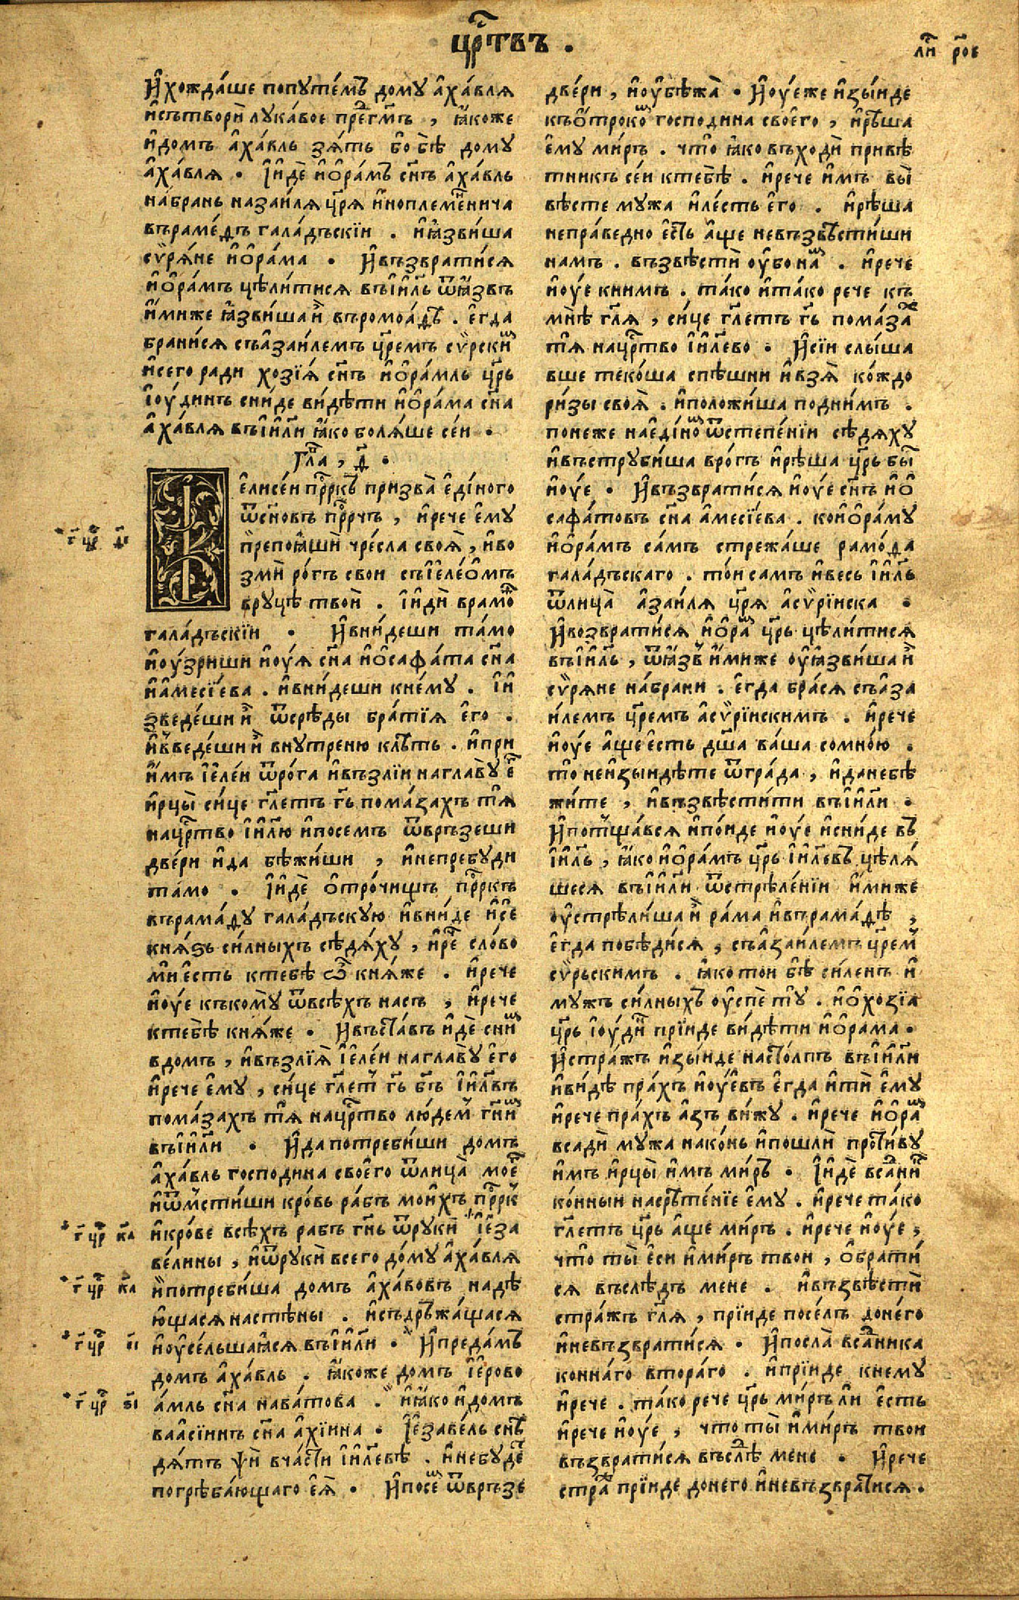 црⷭ҇твъ .
ли҃ ро҃в
И҆хожда́ше попуте́мъ дому а҆ха́вля
и҆сътвори̏ лука́вое пре́дгм҃ъ , ꙗ҆́коже
и҆домъ а҆ха́вль зя́ть бо бѣ̀ дому
а҆ха́вля . І҆и҆де̏ и҆ѻ҆ра́мъ сн҃ъ а҆ха́вль
на́брань наꙁаи́ля цр҃я и҆нопле́менⷩича
въраме́дъ гала́дъскїи . и҆ꙗ҆́звиша
сѵ́ряне и҆ѻ҆ра́ма . И҆възврати́ся
и҆ѻ҆ра́мъ цѣли́тися въі҆и҃ль ѿꙗ҆́звъ
и҆́миже ꙗ҆звиша и҆̏ въромоа́дъ . е҆гда̀
брани́ся съазаи́лемъ цр҃емъ сѵ́рскиⷨ
и҆сего ради хозїя́ сн҃ъ и҆ѻ҆ра́мль цр҃ь
і҆оу́динъ сни́де ви́дѣти и҆ѻ҆ра́ма сн҃а
а҆ха́вля въі҆и҃ли ꙗ҆́ко боля́ше сеи .
гла҃ , д҃ .
Е҆лисе́и прⷪ҇ркъ призва̏ е҆ди́ного
ѿсн҃овъ прⷪ҇рчъ , и҆рече е҆му
препоꙗ҆́ши чре́сла своя̏ , и҆во
зми̏ ро́гъ свои съі҆еле́ѻмъ
вруцѣ̏ твое́и . І҆иди̏ врамⷪ҇
гала́дъскїи . И҆вни́деши та́мо
и҆оу҆́зриши и҆оу́я сн҃а и҆ѻ҆сафа́та сн҃а
и҆а҆месїе́ва . и҆вни́деши кне́му . І҆и
зведе́ши и҆̏ ѿсре́ды братїя е҆го .
и҆въведе́ши и҆̏ внутреню клѣ́ть . и҆при
и҆мъ і҆еле́и ѿро́га и҆възлїи наглаву е҆ⷢ
и҆рцы̏ си́це гл҃етъ гь҃ пома́захъ тя̏
нацрⷭ҇тво і҆и҃лю и҆посемъ ѿвръзеши
две́ри и҆да бѣ́жиши , и҆непребу́ди
та́мо . І҆и҆де̏ ѻ҆тро́чищъ прⷪ҇ркъ
върама́ду гала́дъскую и҆вни́де и҆се
князь си́лныхъ сѣдя́ху , и҆рⷱе̏ сло́во
ми е҆сть ктебѣ̀ ѽ кня́же . и҆рече
и҆оу́е къкому̏ ѿвсѣ́хъ насъ , и҆рече
ктебѣ̀ кня́же . И҆въста́въ и҆де̏ сниⷨ
вдомъ , и҆възлїя̏ і҆еле́и наглаву̏ е҆го
и҆рече е҆му , си́це гл҃етъ гь҃ бг҃ъ і҆и҃лвъ
пома́захъ тя̏ нацрⷭ҇тво лю́демъ гн҃иⷨ
въі҆и҃ли . И҆да потреби́ши домъ
а҆ха́вль господина свое́го ѿлица̏ моеⷢ҇
и҆ѿмсти́ши кро́вь ра́бъ мои́хъ прⷪ҇ркъ
и҆кро́ве всѣ́хъ рабъ гн҃ь ѿруки̏ і҆еза
ве́лины , и҆ѿруки̏ всего дому а҆ха́вля
и҆потреби́ша домъ а҆ха́вовъ надѣ́
ющася настѣ́ны . и҆съдръжа́щася
и҆оу҆се́льшаꙗ҆ся въі҆и҃ли . И҆предамъ
домъ а҆ха́вль . ꙗ҆́коже домъ і҆еро́во
а́мль сн҃а нава́това . и҆ꙗ҆́ко и҆домъ
ваасїинъ сн҃а а҆хїина . І҆езаве́ль снѣ
дя́тъ ѱи̏ вча́сти і҆и҃левѣ . и҆небу́деⷮ
погрѣба́ющаго е҆я̏ . И҆посеⷨ ѿвръзе
две́ри , и҆оу҆бѣжа̏ . И҆оу́е же и҆зы́иде
къѻ҆трокоⷨ господина своего , и҆рѣша
е҆му ми́ръ . что̏ ꙗ҆ко въходи̏ привѣ
тникъ се́и ктебѣ̀ . и҆рече и҆мъ вы̏
вѣ́сте мужа и҆ле́сть е҆го . и҆рѣша
непра́ведно е҆сть а҆ще невъзвѣсти́ши
намъ . възвѣсти̏ оу҆бо наⷨ . и҆рече
и҆оу́е книмъ . та́ко и҆та́ко рече къ
мнѣ̀ гл҃я , си́це гл҃етъ гь҃ пома́заⷯ
тя̏ нацрⷭ҇тво і҆и҃лево . И҆сїи слы́ша
вше теко́ша спѣ́шни и҆взя̏ ко́ждо
ри́зы своя̏ . и҆положи́ша подни́мъ .
понеже нае҆ди́ноⷨ ѿстепе́нїи сѣдя́ху
и҆въструби́ша вро́гъ и҆рѣша цр҃ь бы̏
и҆оу́е . И҆възврати́ся и҆оу́е сн҃ъ и҆ѻ҆
сафа́товъ сн҃а а҆месїе́ва . кои҆ѻ҆ра́му
и҆ѻ҆ра́мъ са́мъ стрежа́ше рамо́да
гала́дъскаго . то́и самъ и҆весь і҆и҃ль
ѿлица̏ а҆заи́ля цр҃я а҆сѵрїиска .
И҆возврати́ся и҆ѻ҆раⷨ цр҃ь цѣли́тися
въі҆и҃ль , ѿꙗ҆́звъ и҆́миже оу҆ꙗ҆звиша и҆̏
сѵ́ряне на́брани . е҆гда бра́ся съа҆за
и́лемъ цр҃емъ а҆сѵрїискимъ . и҆рече
и҆оу́е а҆ще е҆сть дш҃а ва́ша сомно́ю .
то̏ неи҆зыидѣте ѿгра́да , и҆да небѣ
жи́те , и҆възвѣсти́ти въі҆и҃ли .
И҆потща́вся и҆по́иде и҆оу́е и҆сни́де въ
і҆и҃ль , ꙗ҆́ко и҆ѻ҆ра́мъ цр҃ь і҆и҃левъ цѣля́
шеся въі҆и҃ли ѿстрѣле́нїи и҆́миже
оу҆стрѣли́ша и҆̏ ра́ма и҆върама́дѣ ,
е҆гда побѣди́ся , съа҆заи́лемъ цр҃емъ
сѵ́рьскимъ . ꙗ҆ко то́и бѣ̀ си́ленъ и҆
мужъ си́лныхъ оу҆спѣ ту . и҆ѻ҆хозїа
цр҃ь і҆оу́диⷩ прїиде ви́дѣти и҆ѻ҆ра́ма .
И҆стра́жъ и҆зы́иде насто́лпъ въі҆и҃ли
и҆ви́дѣ пра́хъ и҆оу́евъ е҆гда и҆ти̏ е҆му
и҆рече пра́хъ а҆зъ ви́жу . и҆рече и҆ѻ҆раⷨ
всади̏ мужа нако́нь и҆пошли̏ проти́ву
и҆мъ и҆рцы̏ и҆мъ ми́ръ . І҆и҆де̏ вса́дниⷦ
ко́нныи насрѣте́нїе е҆му . и҆рече та́ко
гл҃етъ цр҃ь а҆ще ми́ръ . и҆рече и҆оу́е ,
что̏ ты̏ е҆си и҆ми́ръ твои , ѻ҆брати́
ся въслѣ́дъ мене . и҆възвѣсти̏
стра́жъ гл҃я , прїиде посе́лъ доне́го
и҆невъзврати́ся . И҆посла̏ вса́дника
ко́ннаго втора́го . и҆прїиде кнему
и҆рече . та́ко рече цр҃ь ми́ръ ли е҆сть
и҆рече и҆оу́е , что ты̏ и҆ми́ръ твои
възврати́ся въслѣⷣ мене . И҆рече
страⷤ прїиде донего и҆невъзврати́ся .
г҃ црⷭ҇ к҃а
г҃ црⷭ҇ к҃а